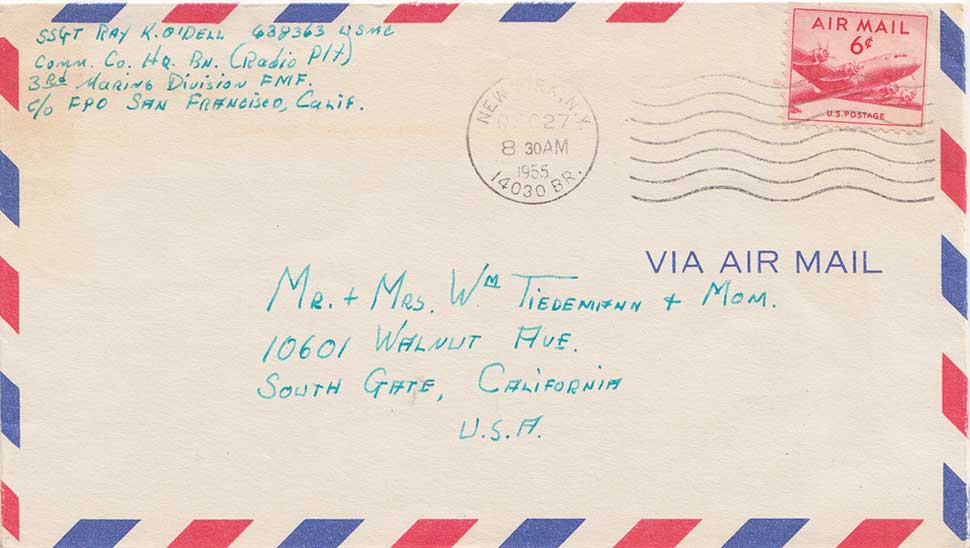 SSGT RAY K. O'DELL 638363 USMC
Comm. Co. Hq. Bn. (Radio Plt)
3rd Marine Division FMF.
c/o FPO SAN FRANCISCO, CALIF.
AIR MAIL
6¢
U.S. POSTAGE
NEW YORK, N.Y.
27
8 30 AM
1955
14030 BR.
VIA AIR MAIL
MR. + MRS. WM TIEDEMANN + MOM.
10601 WALNUT AVE.
SOUTH GATE, CALIFORNIA
U.S.A.